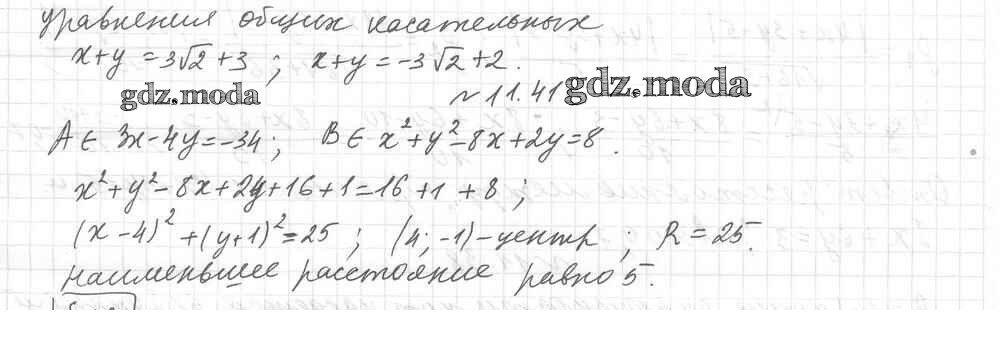 уравнения общих касательных
x+y=3√2+3; x+y=-3√2+2.
gdz.moda ~11.41 gdz.moda
A∈ 3x-4y=-34; B∈ x²+y²-8x+2y=8.
x²+y²-8x+2y+16+1=16+1+8;
(x-4)²+(y+1)²=25; (4;-1)-центр; R=25.
наименьшее расстояние равно 5.